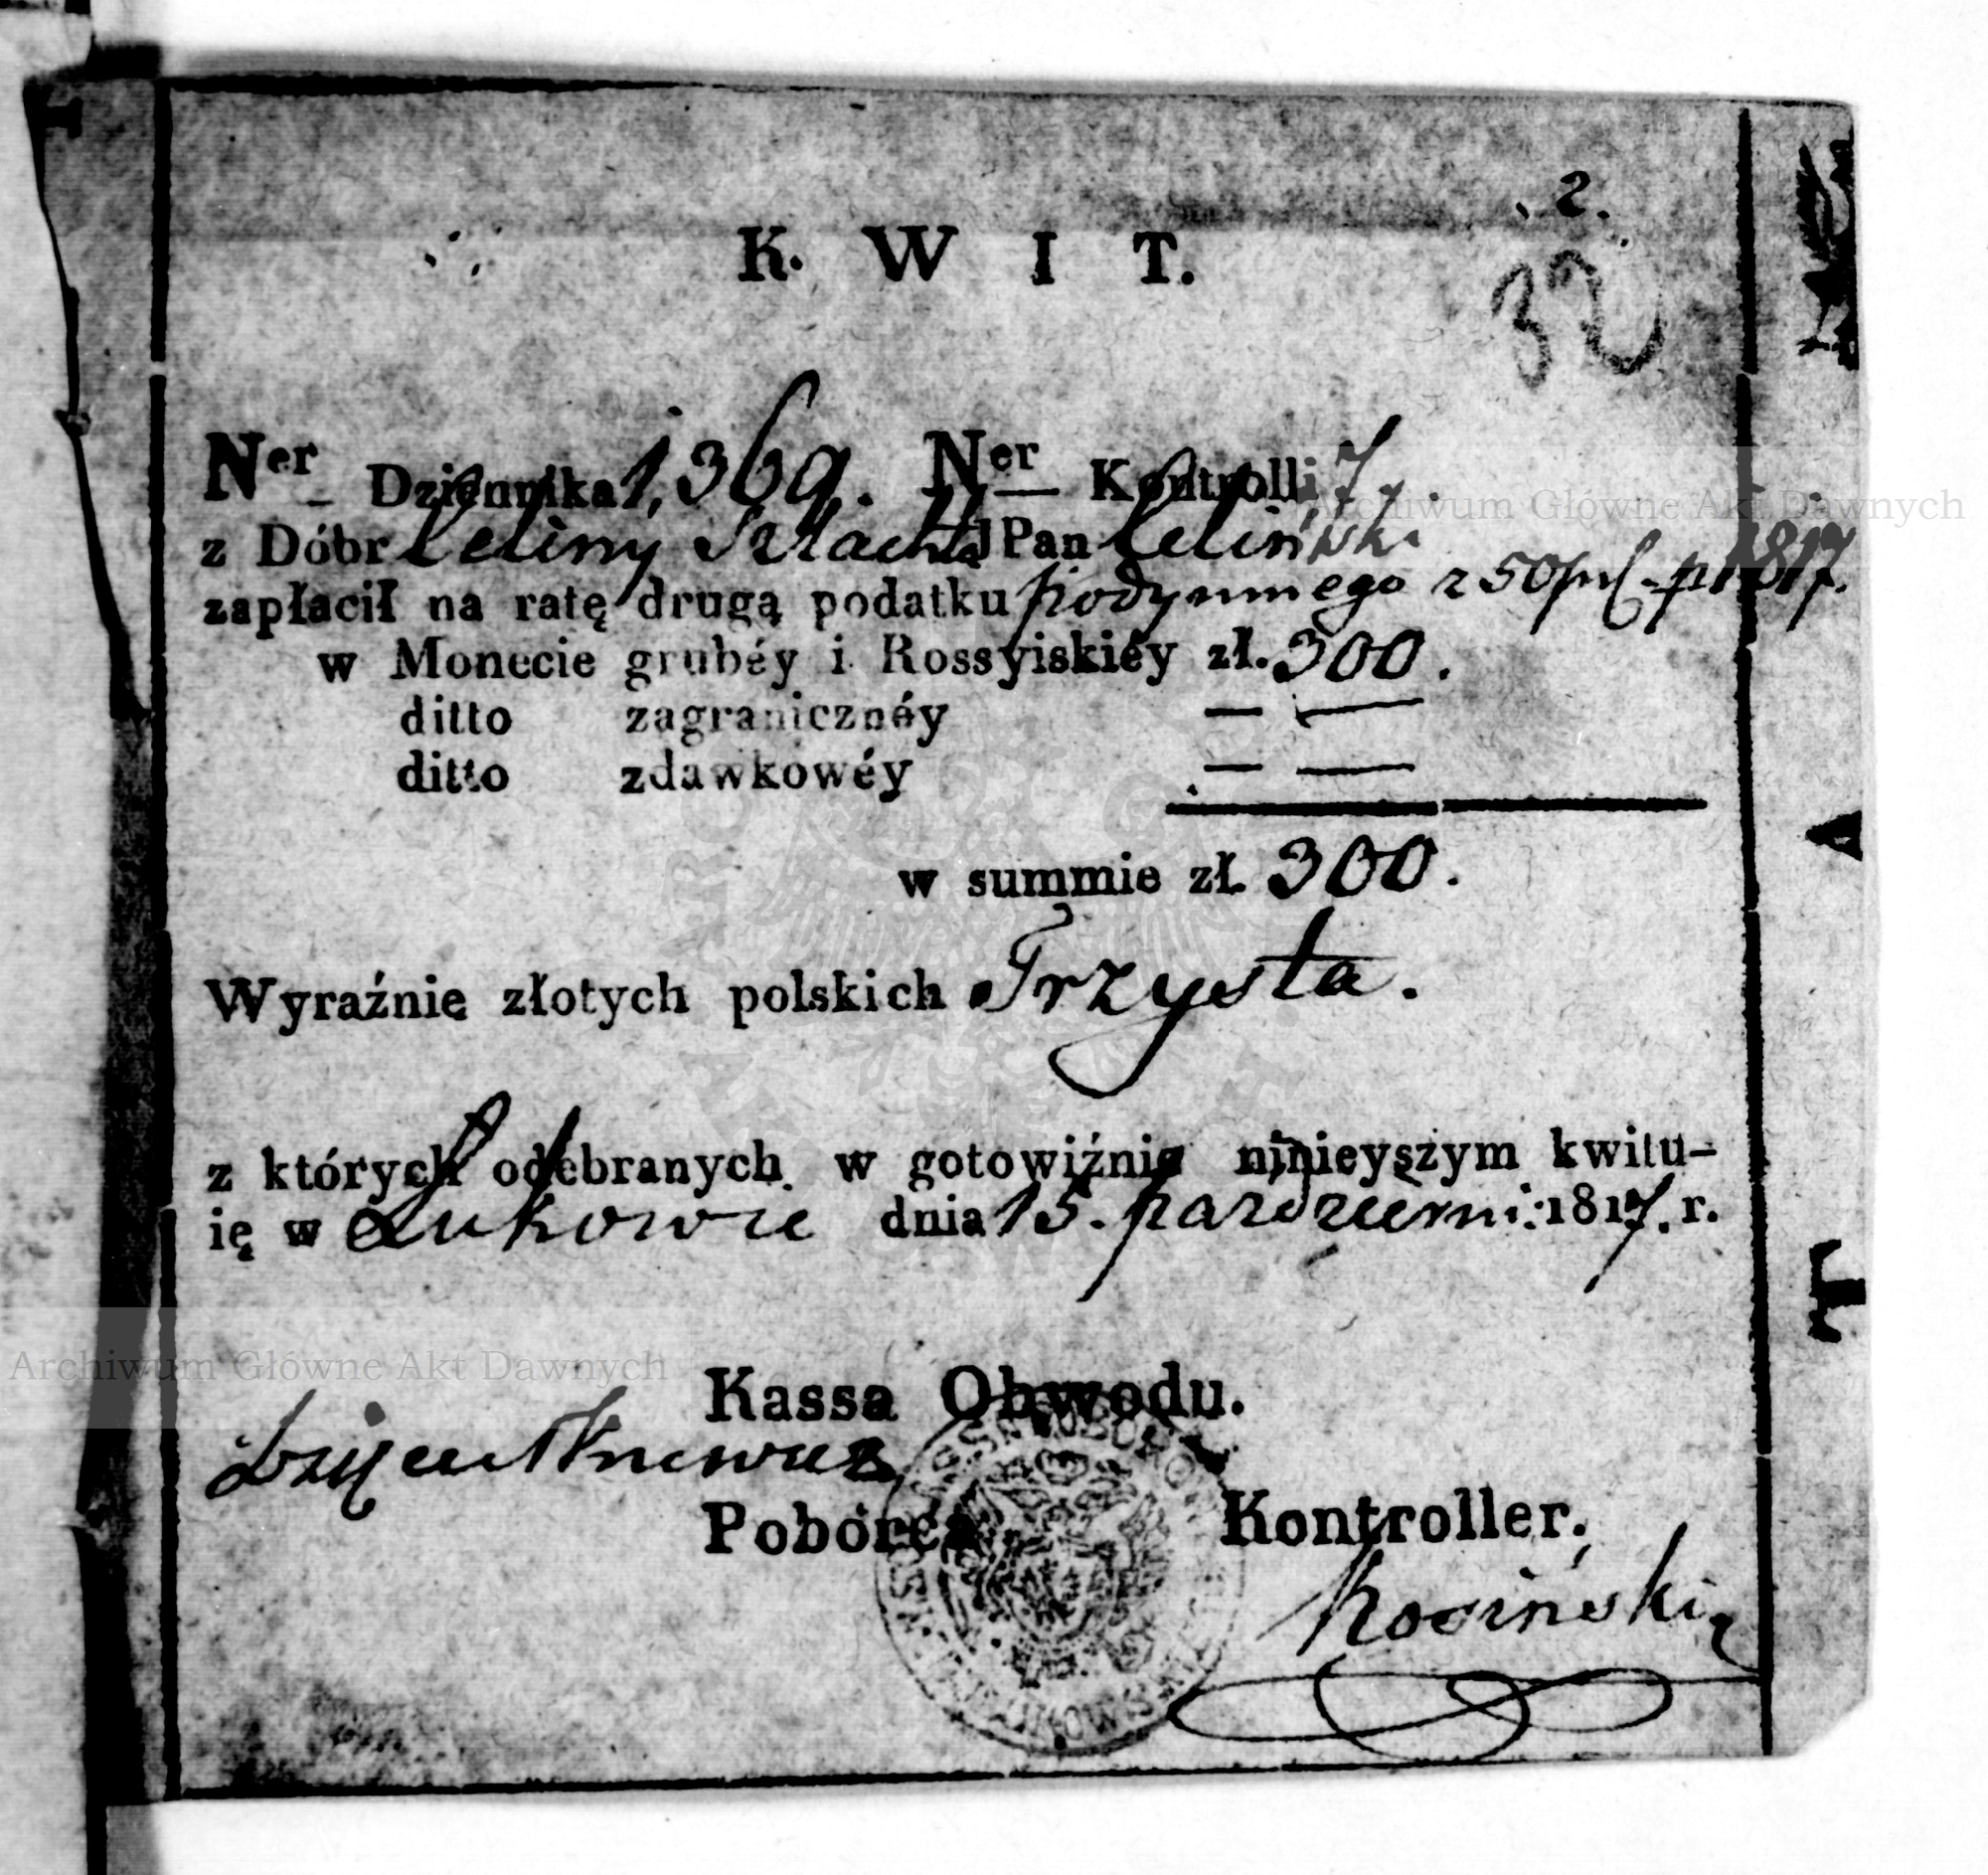 2.
32
K W I T.
Ner Dziennika 1,369. Ner Kontrolli 7.
z Dóbr Celiny Szlachta JPan Celiński
zapłacił na ratę drugą podatku Podymnego z 50 1817.
w Monecie grubéy i Rossyiskiéy zł. 300.
ditto zagranicznéy — —
ditto zdawkowéy — —
w summie zł. 300.
Wyraźnie złotych polskich Trzysta.
z których odebranych w gotowiźnie ninieyszym kwitu-
ię w Łukowie dnia 15. październi: 1817. r.
Kassa Obwodu.
Poborca Kontroller.
Kosiński
A
T
Archiwum Główne Akt Dawnych
Archiwum Główne Akt Dawnych